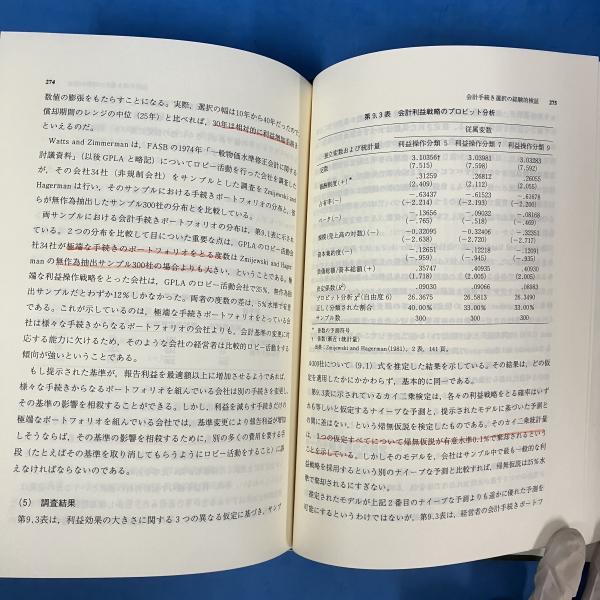 274
数値の膨張をもたらすことになる。実際，選択の幅は10年から40年だったので，
償却期間のレンジの中位（25年）と比べれば，30年は相対的に利益増加手続き
といえるのだ。
Watts and Zimmerman は，FASB の1974年「一般物価水準修正会計に関する
討議資料」（以後 GPLA と略記）についてロビー活動を行った会社を調査した
が，その会社34社（非規制会社）をサンプルとした調査を Zmijewski and
Hagerman は行い，そのサンプルにおける手続きポートフォリオの分布と，彼
らが無作為抽出したサンプル300社の分布とを比較している。
両サンプルにおける会計手続きポートフォリオの分布は，第9.1表に示され
ている。2つの分布を比較して目についた重要な点は，GPLA のロビー活動会
社34社が極端な手続きのポートフォリオをとる度数は Zmijewski and Hager-
man の無作為抽出サンプル300社の場合よりも大きい，ということである。極
端な利益操作戦略をとった会社は，GPLA のロビー活動会社で35％，無作為抽
出サンプルだとわずか12％しかなかった。両者の度数の差は，5％水準で有意
である。これが示しているのは，極端な手続きポートフォリオをとっている会
社は様々な手続きからなるポートフォリオの会社よりも，会計基準の変更に対
応する能力に欠けるため，そのような会社の経営者は比較的ロビー活動をする
傾向が強いということである。
もし提示された基準が，報告利益を最適額以上に増加させるようであれば，
様々な手続きからなるポートフォリオを組んでいる会社は別の手続きを変更し，
その基準の影響を相殺することができる。しかし，利益を減らす手続きだけの
極端なポートフォリオを組んでいる会社では，基準変更により報告利益が増加
しそうならば，その基準の影響を相殺するために，別の多くの費用を要する手
段（たとえばその基準を取り消してもらうようにロビー活動をすること）に訴
えなければならないのである。
(5) 調査結果
第9.3表は，利益効果の大きさに関する3つの異なる仮定に基づき，サンプ
会計手続き選択の経験的検証 275
第9.3表 会計利益戦略のプロビット分析
従属変数
独立変数および統計量 利益操作分類 5 利益操作分類 7 利益操作分類 9
定数 3.10356† 3.03981 3.03283
(7.515) (7.598) (7.592)
報酬制度(+)* .31259 .26812 .26055
(2.409) (2.112) (2.055)
占有率(−) −.63437 −.61521 −.61678
(−2.214) (−2.193) (−2.200)
ベータ(−) −.13656 −.09032 −.08168
(−.765) (−.518) (−.469)
規模(売上高の対数)(−) −0.32095 −0.32406
(−2.638) (−2.720) (−2.717)
資本集約度(−) −.12651 −.12218 −.12091
(−.959) (−.945) (−.935)
負債総額/資本総額(+) .35747 .40935 .40930
(1.718) (2.005) (2.005)
.09030 .09066 .08983
プロビット分析 χ²(自由度 6) 26.3675 26.5813 26.3490
正しく分類された割合 40.00% 33.00% 33.00%
サンプル数 300 300 300
* 係数の予測符号
† 係数(漸近 t 統計量)
出典：Zmijewski and Hagerman(1981)，2 表，141 頁。
ル300社について（9.1）式を推定した結果を示している。その結果は，どの仮
定を適用したかにかかわらず，基本的に同一である。
第9.3表に示されているカイ二乗検定は，各々の利益戦略をとる確率はいず
れも等しいと仮定するナイーブな予測と，提示されたモデルに基づいた予測と
の間に差はない，という帰無仮説を検定したものである。そのカイ二乗統計量
は，3つの仮定すべてについて帰無仮説が有意水準0.1％で棄却されるという
ことを示している。しかしそのモデルを，会社はサンプル中で最も一般的な利
益戦略を採用するという別のナイーブな予測と比較すれば，帰無仮説は25％水
準で棄却されるにすぎない。
推定されたモデルが上記2番目のナイーブな予測よりも遥かに優れた予測を
可能にするというわけではないが，第9.3表は，経営者の会計手続きポートフ